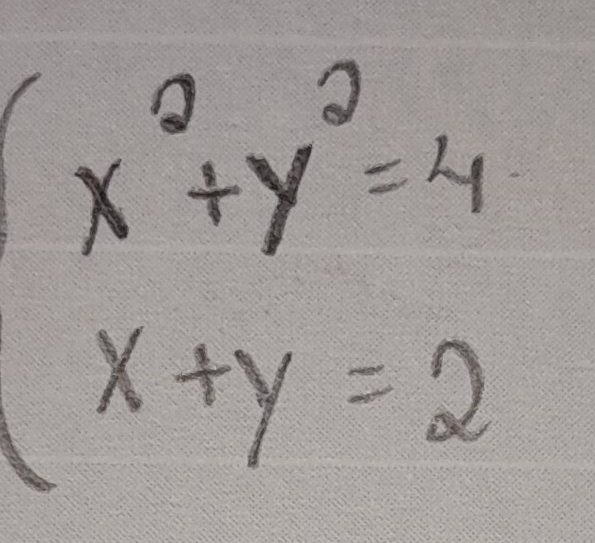 x²+y²=4
x+y=2